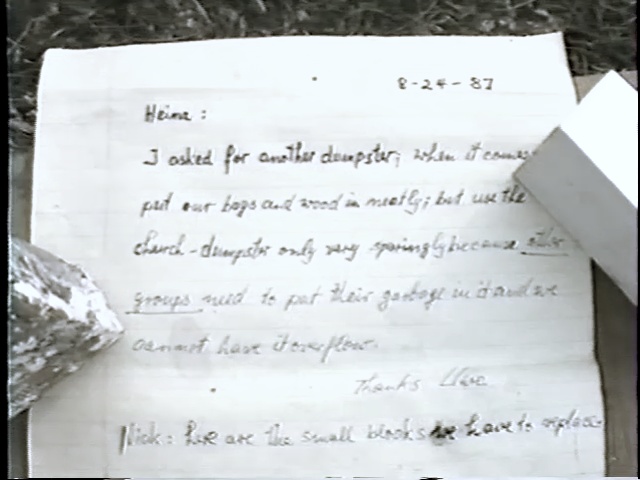 8-24-87
Heima:
I asked for another dumpster; when it comes
put our bags and wood in neatly; but use the
church-dumpster only very sparingly because other
groups need to put their garbage in it and we
cannot have it overflow.
Thanks
Nick: here are the small blocks we have to replace